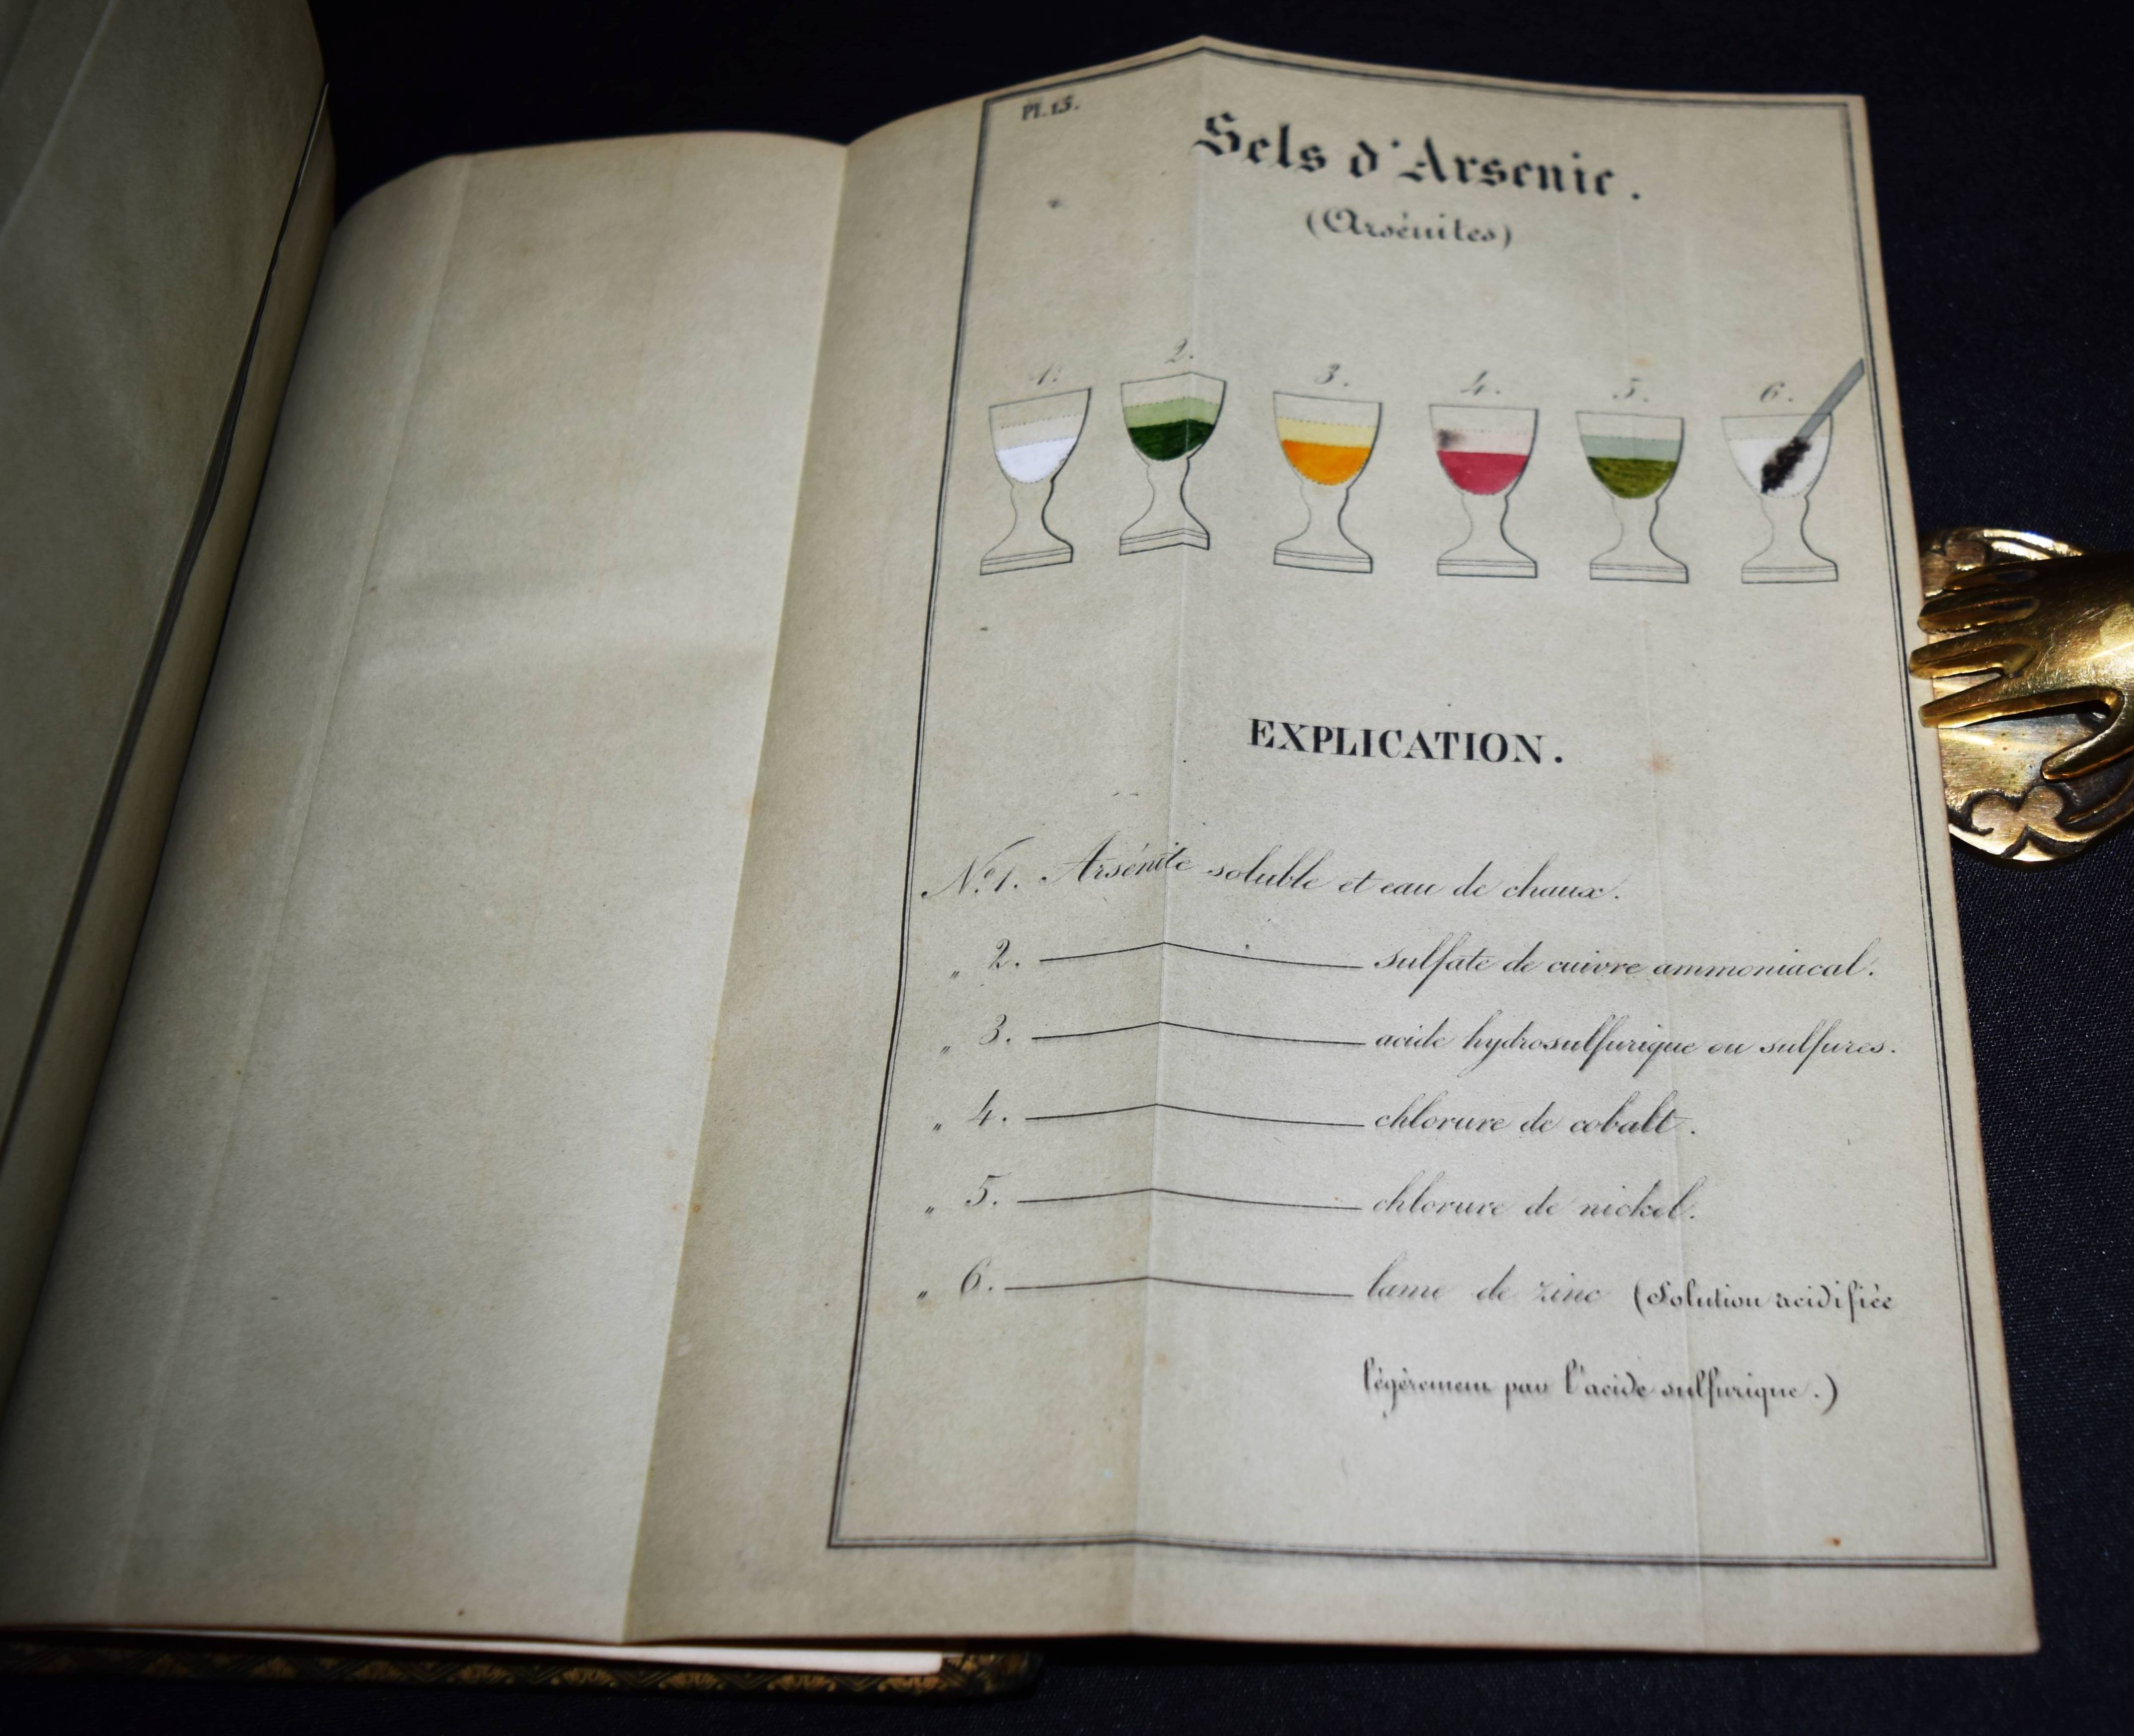 Pl. 15.
Sels d'Arsenic.
(Arsénites)
1. 2. 3. 4. 5. 6.
EXPLICATION.
N.º 1. Arsénite soluble et eau de chaux.
„ 2. ——— sulfate de cuivre ammoniacal.
„ 3. ——— acide hydrosulfurique ou sulfures.
„ 4. ——— chlorure de cobalt.
„ 5. ——— chlorure de nickel.
„ 6. ——— lame de zinc (Solution acidifiée
légèrement par l'acide sulfurique.)